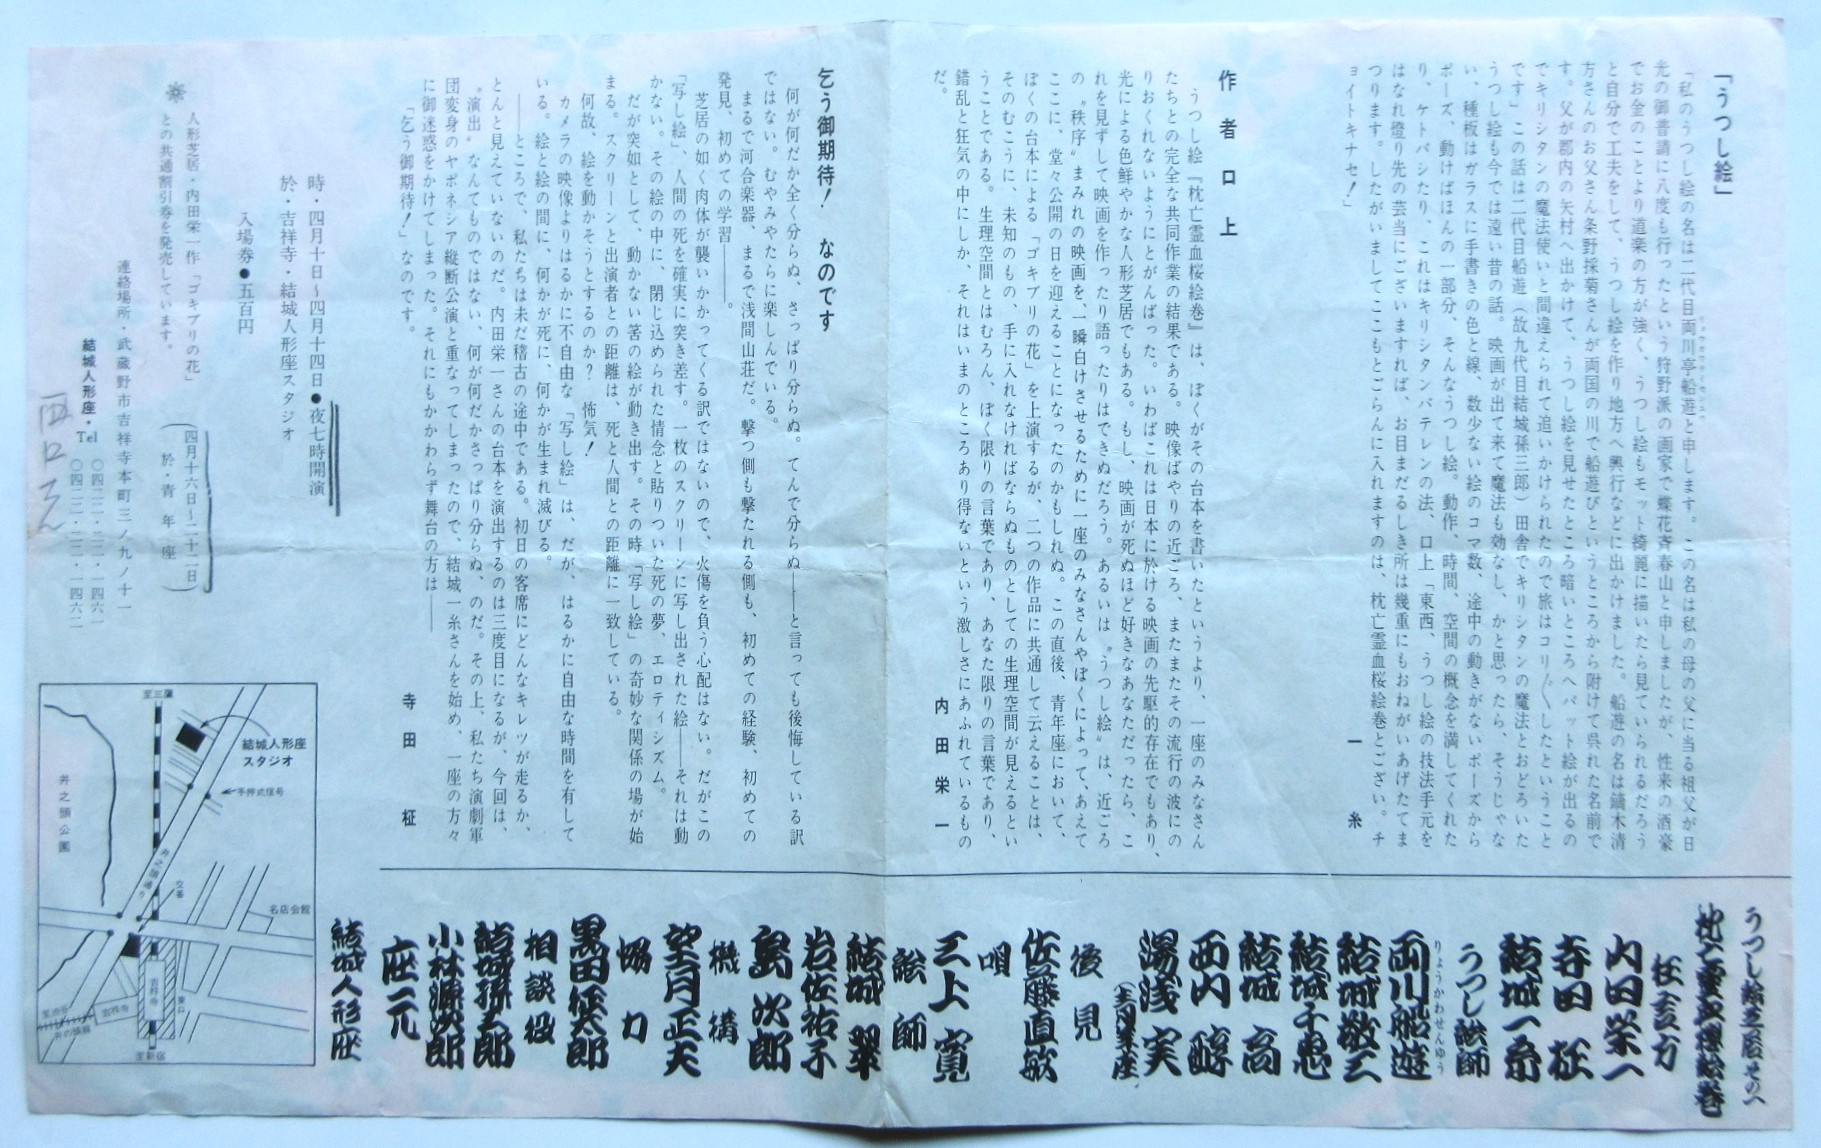 「うつし絵」
「私のうつし絵の名は二代目両川亭船遊と申します。この名は私の母の父に当る祖父が日
光の御普請に八度も行ったという狩野派の画家で蝶花斉春山と申しましたが、性来の酒豪
でお金のことより道楽の方が強く、うつし絵もモット綺麗に描いたら見ていられるだろう
と自分で工夫をして、うつし絵を作り地方へ興行などに出かけました。船遊の名は鏑木清
方さんのお父さん条野採菊さんが両国の川で船遊びというところから附けて呉れた名前で
す。父が郡内の矢村へ出かけて、うつし絵を見せたところ暗いところへパット絵が出るの
でキリシタンの魔法使いと間違えられて追いかけられたので旅はコリ〳〵したということ
です」この話は二代目船遊（故九代目結城孫三郎）田舎でキリシタンの魔法とおどろいた
うつし絵も今では遠い昔の話。映画が出て来て魔法も効なし、かと思ったら、そうじゃな
い、種板はガラスに手書きの色と線、数少ない絵のコマ数、途中の動きがないポーズから
ポーズ、動けばほんの一部分、そんなうつし絵。動作、時間、空間の概念を満してくれた
り、ケトバシたり、これはキリシタンバテレンの法、口上「東西、うつし絵の技法手元を
はなれ燈り先の芸当にございますれば、お目まだるしき所は幾重にもおねがいあげたてま
つります。したがいましてここもとごらんに入れますのは、枕亡霊血桜絵巻とござい。チ
ョイトキナセ！」
一糸
作者口上
うつし絵『枕亡霊血桜絵巻』は、ぼくがその台本を書いたというより、一座のみなさん
たちとの完全な共同作業の結果である。映像ばやりの近ごろ、またまたその流行の波にの
りおくれないようにとがんばった。いわばこれは日本に於ける映画の先駆的存在でもあり、
光による色鮮やかな人形芝居でもある。もし、映画が死ぬほど好きなあなただったら、こ
れを見ずして映画を作ったり語ったりはできぬだろう。あるいは〝うつし絵〟は、近ごろ
の〝秩序〟まみれの映画を、一瞬白けさせるために一座のみなさんやぼくによって、あえて
ここに、堂々公開の日を迎えることになったのかもしれぬ。この直後、青年座において、
ぼくの台本による「ゴキブリの花」を上演するが、二つの作品に共通して云えることは、
そのむこうに、未知のもの、手に入れなければならぬものとしての生理空間が見えるとい
うことである。生理空間とはむろん、ぼく限りの言葉であり、あなた限りの言葉であり、
錯乱と狂気の中にしか、それはいまのところあり得ないという激しさにあふれているもの
だ。
内田栄一
乞う御期待！　なのです
何が何だか全く分らぬ、さっぱり分らぬ。てんで分らぬ——と言っても後悔している訳
ではない。むやみやたらに楽しんでいる。
まるで河合楽器、まるで浅間山荘だ。撃つ側も撃たれる側も、初めての経験、初めての
発見、初めての学習——。
芝居の如く肉体が襲いかかってくる訳ではないので、火傷を負う心配はない。だがこの
「写し絵」、人間の死を確実に突き差す。一枚のスクリーンに写し出された絵——それは動
かない。その絵の中に、閉じ込められた情念と貼りついた死の夢、エロティシズム。
だが突如として、動かない筈の絵が動き出す。その時「写し絵」の奇妙な関係の場が始
まる。スクリーンと出演者との距離は、死と人間との距離に一致している。
何故、絵を動かそうとするのか？　怖気！
カメラの映像よりはるかに不自由な「写し絵」は、だが、はるかに自由な時間を有して
いる。絵と絵の間に、何かが死に、何かが生まれ滅びる。
——ところで、私たちは未だ稽古の途中である。初日の客席にどんなキレツが走るか、
とんと見えていないのだ。内田栄一さんの台本を演出するのは三度目になるが、今回は、
〝演出〟なんてものではない、何が何だかさっぱり分らぬ、のだ。その上、私たち演劇軍
団変身のヤポネシア縦断公演と重なってしまったので、結城一糸さんを始め、一座の方々
に御迷惑をかけてしまった。それにもかかわらず舞台の方は——
「乞う御期待！」なのです。
寺田柾
時・四月十日〜四月十四日●夜七時開演
於・吉祥寺・結城人形座スタジオ
入場券●五百円
人形芝居・内田栄一作「ゴキブリの花」
（四月十六日〜二十二日）
（於・青年座）
との共通割引券を発売しています。
連絡場所・武蔵野市吉祥寺本町三ノ九ノ十一
結城人形座・Tel
〇四二二・二二・一四六一
〇四二二・二二・一四六二
西口
至三鷹
結城人形座
スタジオ
手押式信号
井之頭公園
井之頭通り
交番
名店会館
吉祥寺
東口
至渋谷
井の頭線
吉祥寺
至新宿
うつし絵芝居その八
枕亡霊血桜絵巻
狂言方
内田栄一
寺田柾
結城一糸
うつし絵師
両川船遊
りょうかわせんゆう
結城敬三
結城千恵
結城高
西内醇
湯浅実
（青年座）
後見
佐藤直敏
唄
三上寛
絵師
結城翠
岩佐祐子
島次郎
機構
望月正夫
協力
黒田征太郎
相談役
結城孫三郎
小林源次郎
座元
結城人形座